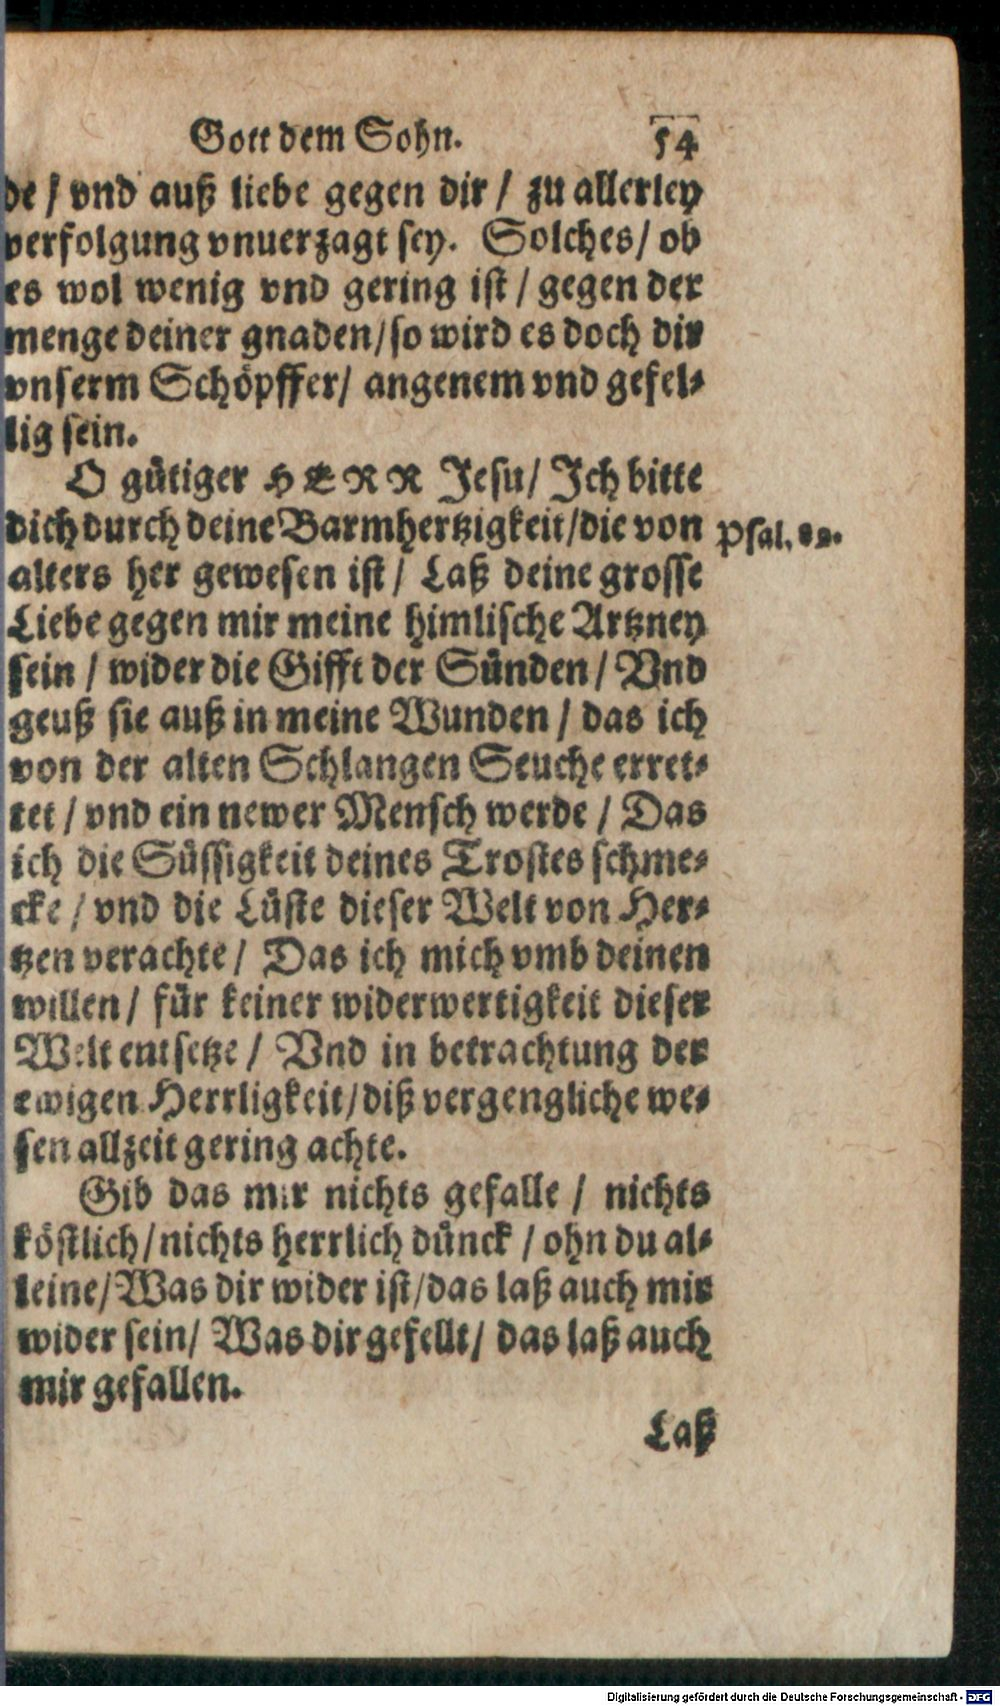 Gott dem Sohn. 54
de / vnd auß liebe gegen dir / zu allerley
verfolgung vnuerzagt sey. Solches / ob
es wol wenig vnd gering ist / gegen der
menge deiner gnaden / so wird es doch dir
vnserm Schöpffer / angenem vnd gefel-
lig sein.
O gütiger HERR Jesu / Ich bitte
dich durch deine Barmhertzigkeit / die von
Psal.
alters her gewesen ist / Laß deine grosse
Liebe gegen mir meine himlische Artzney
sein / wider die Gifft der Sünden / Vnd
geuß sie auß in meine Wunden / das ich
von der alten Schlangen Seuche erret-
tet / vnd ein newer Mensch werde / Das
ich die Süssigkeit deines Trostes schme-
cke / vnd die Lüste dieser Welt von Her-
tzen verachte / Das ich mich vmb deinen
willen / für keiner widerwertigkeit dieser
Welt entsetze / Vnd in betrachtung der
ewigen Herrligkeit / diß vergengliche we-
sen allzeit gering achte.
Gib das mir nichts gefalle / nichts
köstlich / nichts herrlich dünck / ohn du al-
leine / Was dir wider ist / das laß auch mir
wider sein / Was dir gefellt / das laß auch
mir gefallen.
Laß
Digitalisierung gefördert durch die Deutsche Forschungsgemeinschaft - DFG